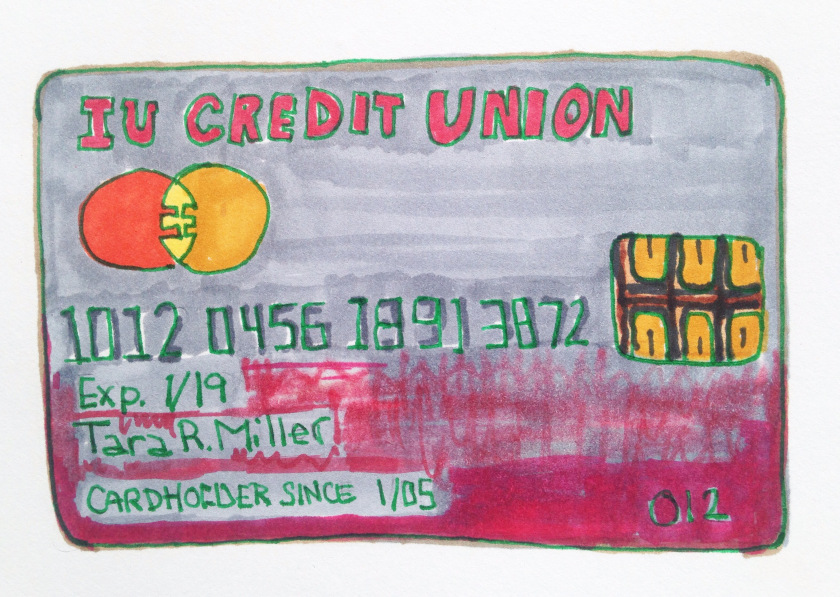 IU CREDIT UNION
1012 0456 1891 3872
Exp. 1/19
Tara R. Miller
CARDHOLDER SINCE 1/05
012